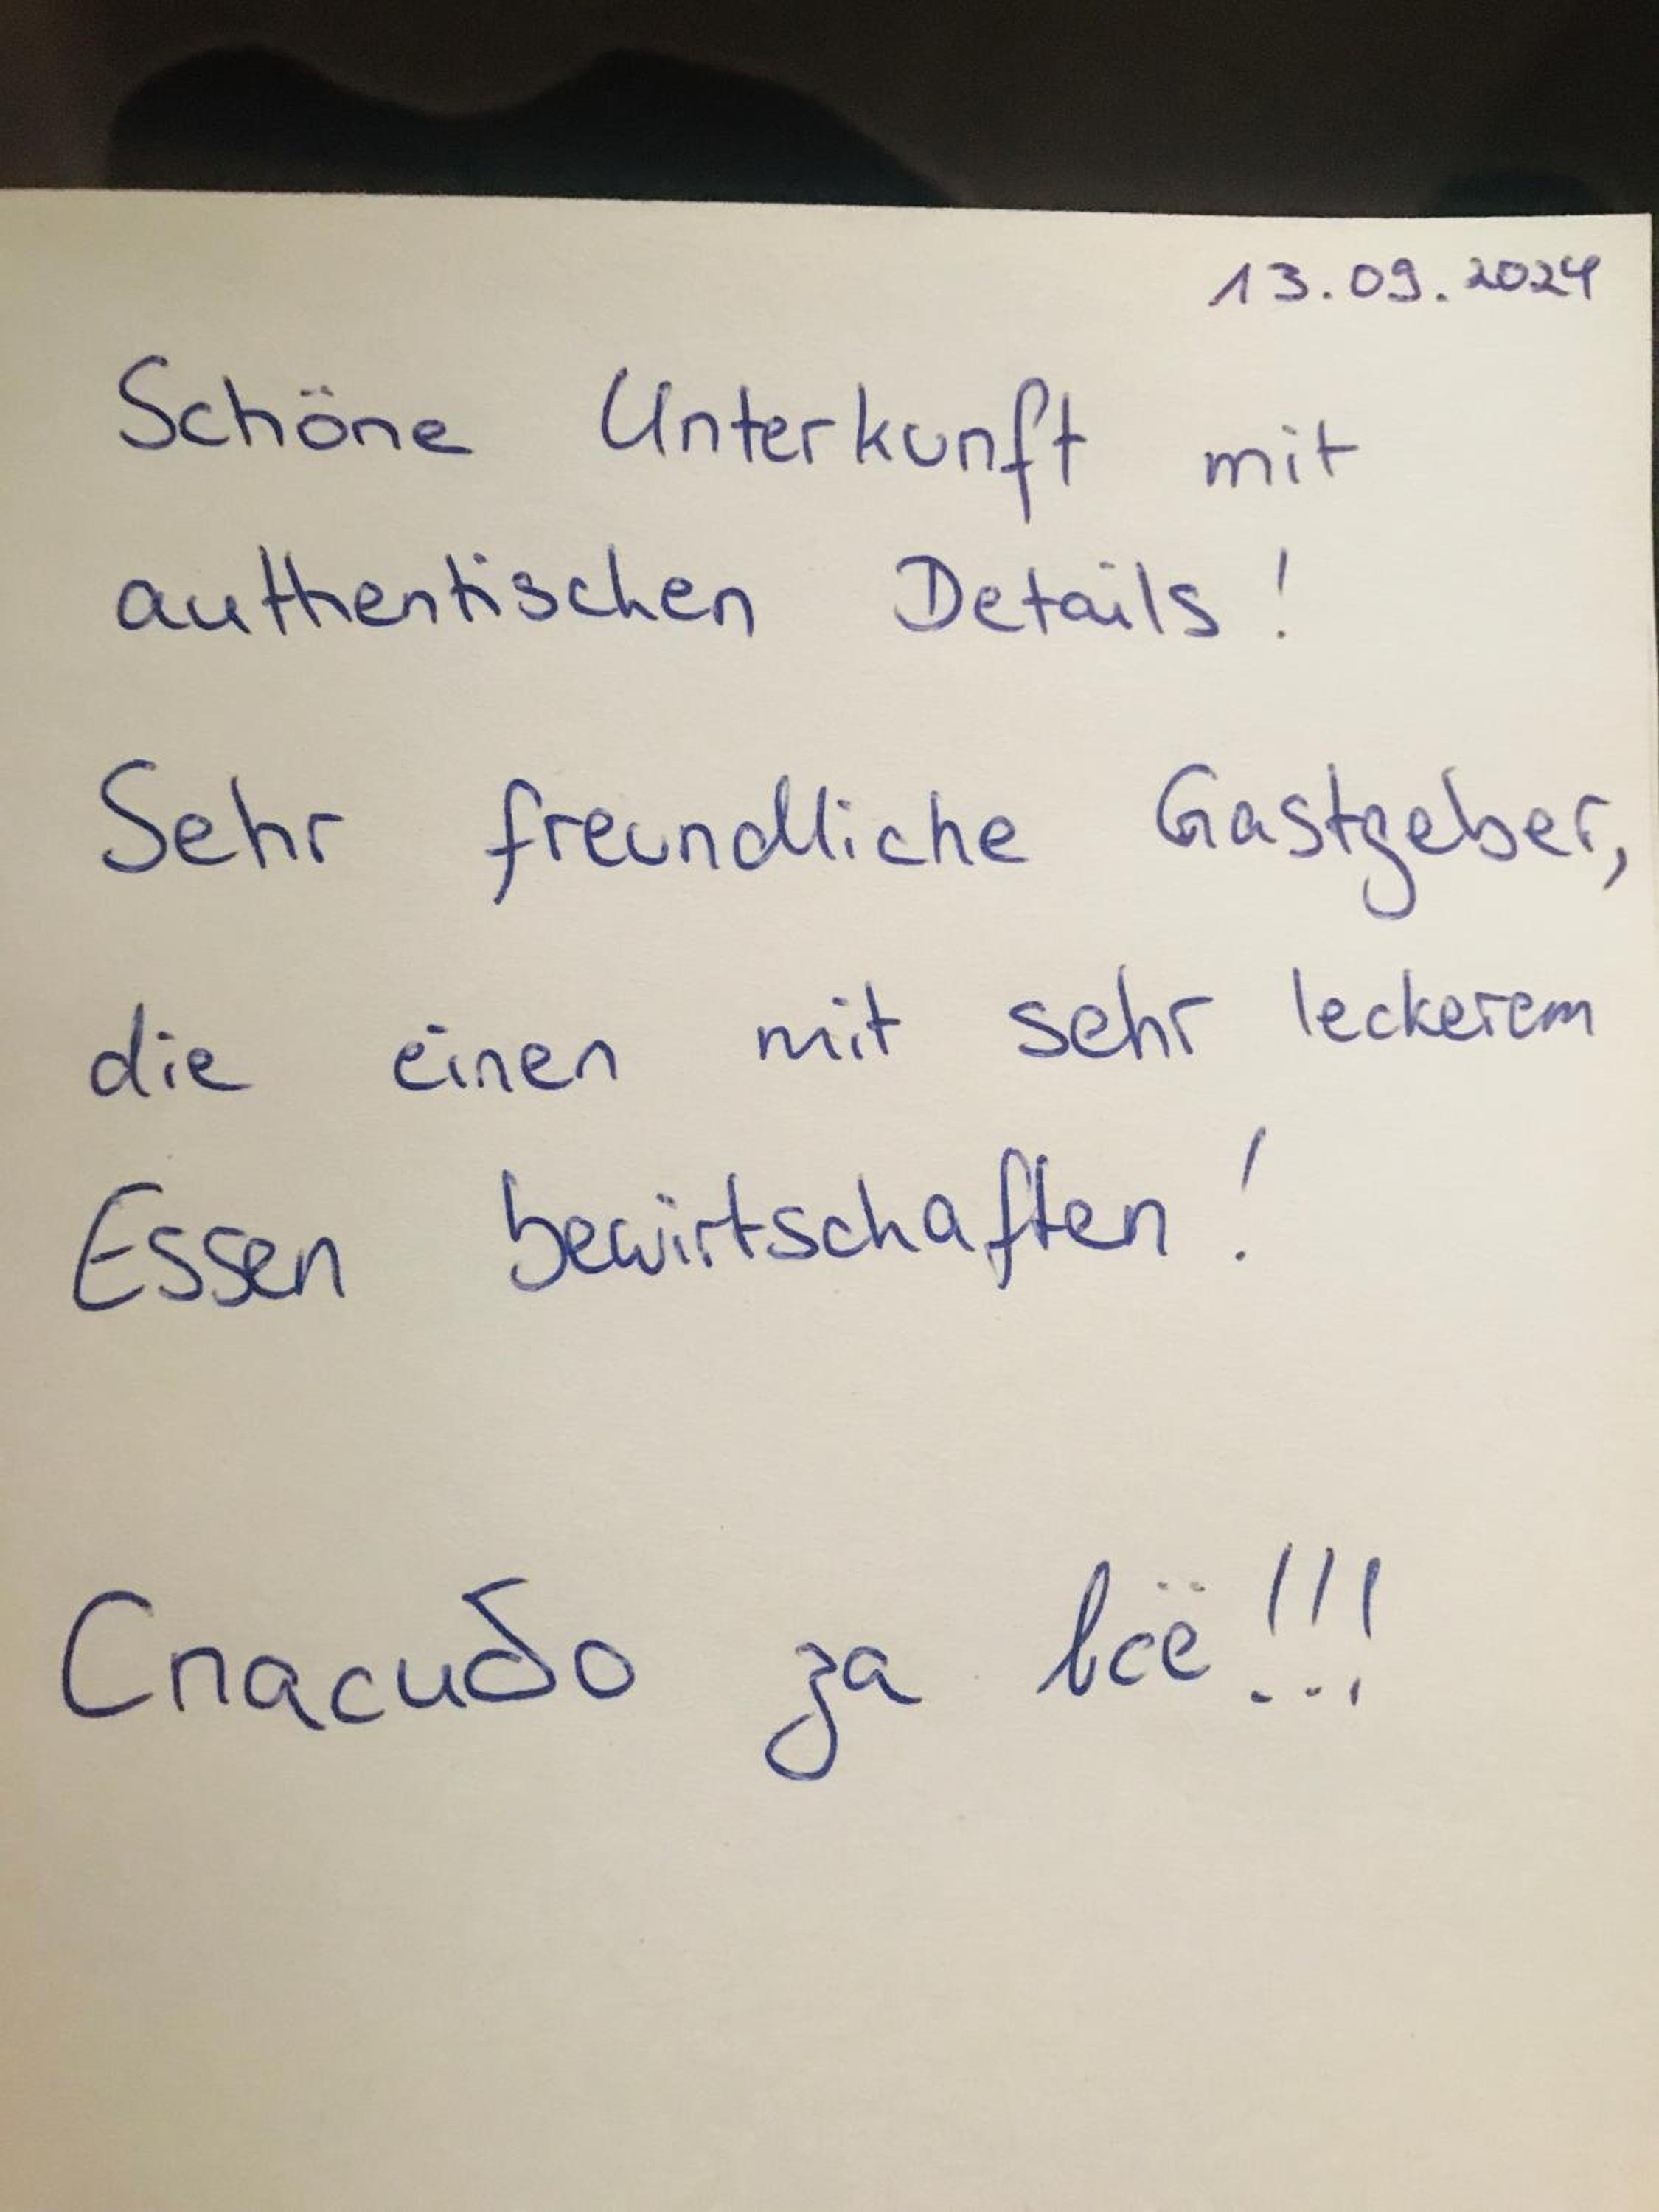 13.09.2024
Schöne Unterkunft mit
authentischen Details!
Sehr freundliche Gastgeber,
die einen mit sehr leckerem
Essen bewirtschaften!
Спасибо за всё!!!